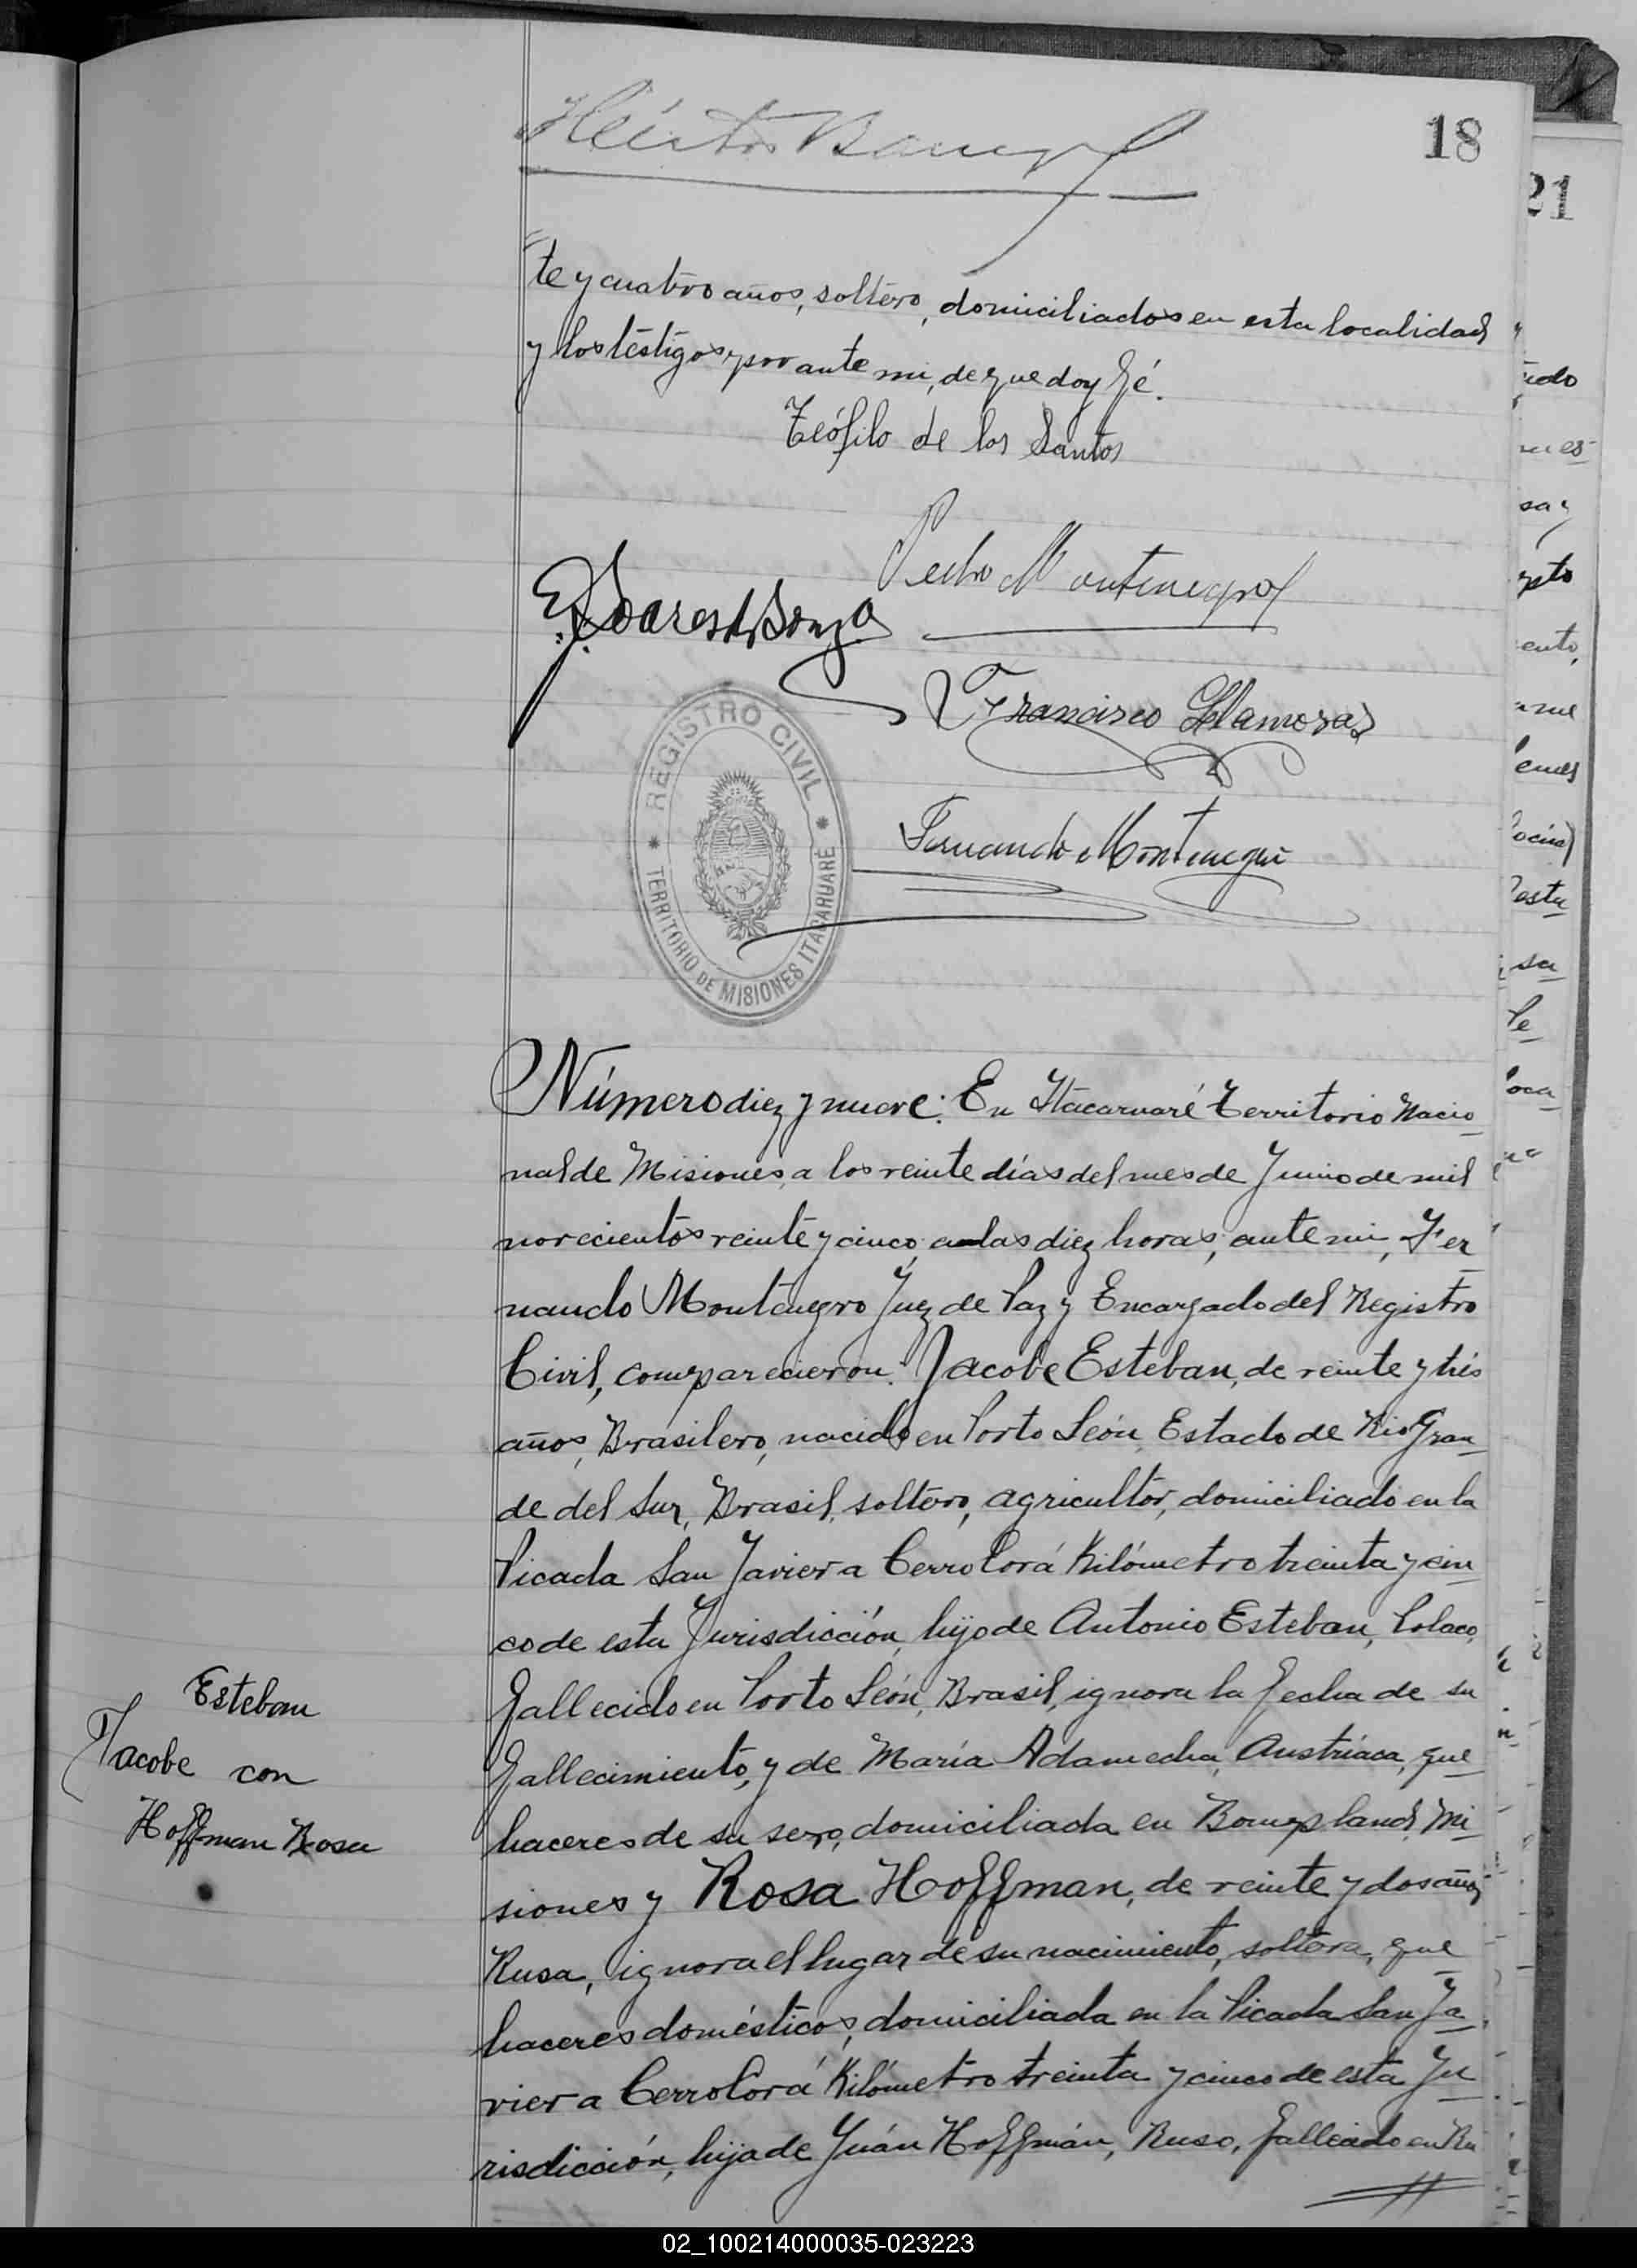 18
21
te y cuatro años, soltero, domiciliados en esta localidad
y los testigos y por ante mi, de que doy fé.
Teófilo de los Santos
Pedro Montenegro
Francisco Llamosas
Fernando Montenegro
* REGISTRO CIVIL *
TERRITORIO DE MISIONES ITACARUARÉ
Número diez y nueve: En Itacaruaré Territorio Nacio
nal de Misiones, a los veinte días del mes de Junio de mil
novecientos veinte y cinco, a las diez horas, ante mi, Fer
nando Montenegro Juez de Paz y Encargado del Registro
Civil, comparecieron: Jacobe Esteban, de veinte y tres
años, Brasilero, nacido en Porto León Estado de Rio Gran
de del Sur, Brasil, soltero, agricultor, domiciliado en la
Picada San Javier a Cerro Corá Kilómetro treinta y cin
co de esta Jurisdicción, hijo de Antonio Esteban, Polaco,
fallecido en Porto León, Brasil, ignora la fecha de su
fallecimiento, y de María Adamecha, Austríaca, que
haceres de su sexo, domiciliada en Bompland, Mi
siones y Rosa Hoffman, de veinte y dos años,
Rusa, ignora el lugar de su nacimiento, soltera, que
haceres domésticos, domiciliada en la Picada San Ja
vier a Cerro Corá Kilómetro treinta y cinco de esta Ju
risdicción, hija de Juán Hoffmán, Ruso, fallecido en Ru
Esteban
Jacobe con
Hoffman Rosa
02_100214000035-023223